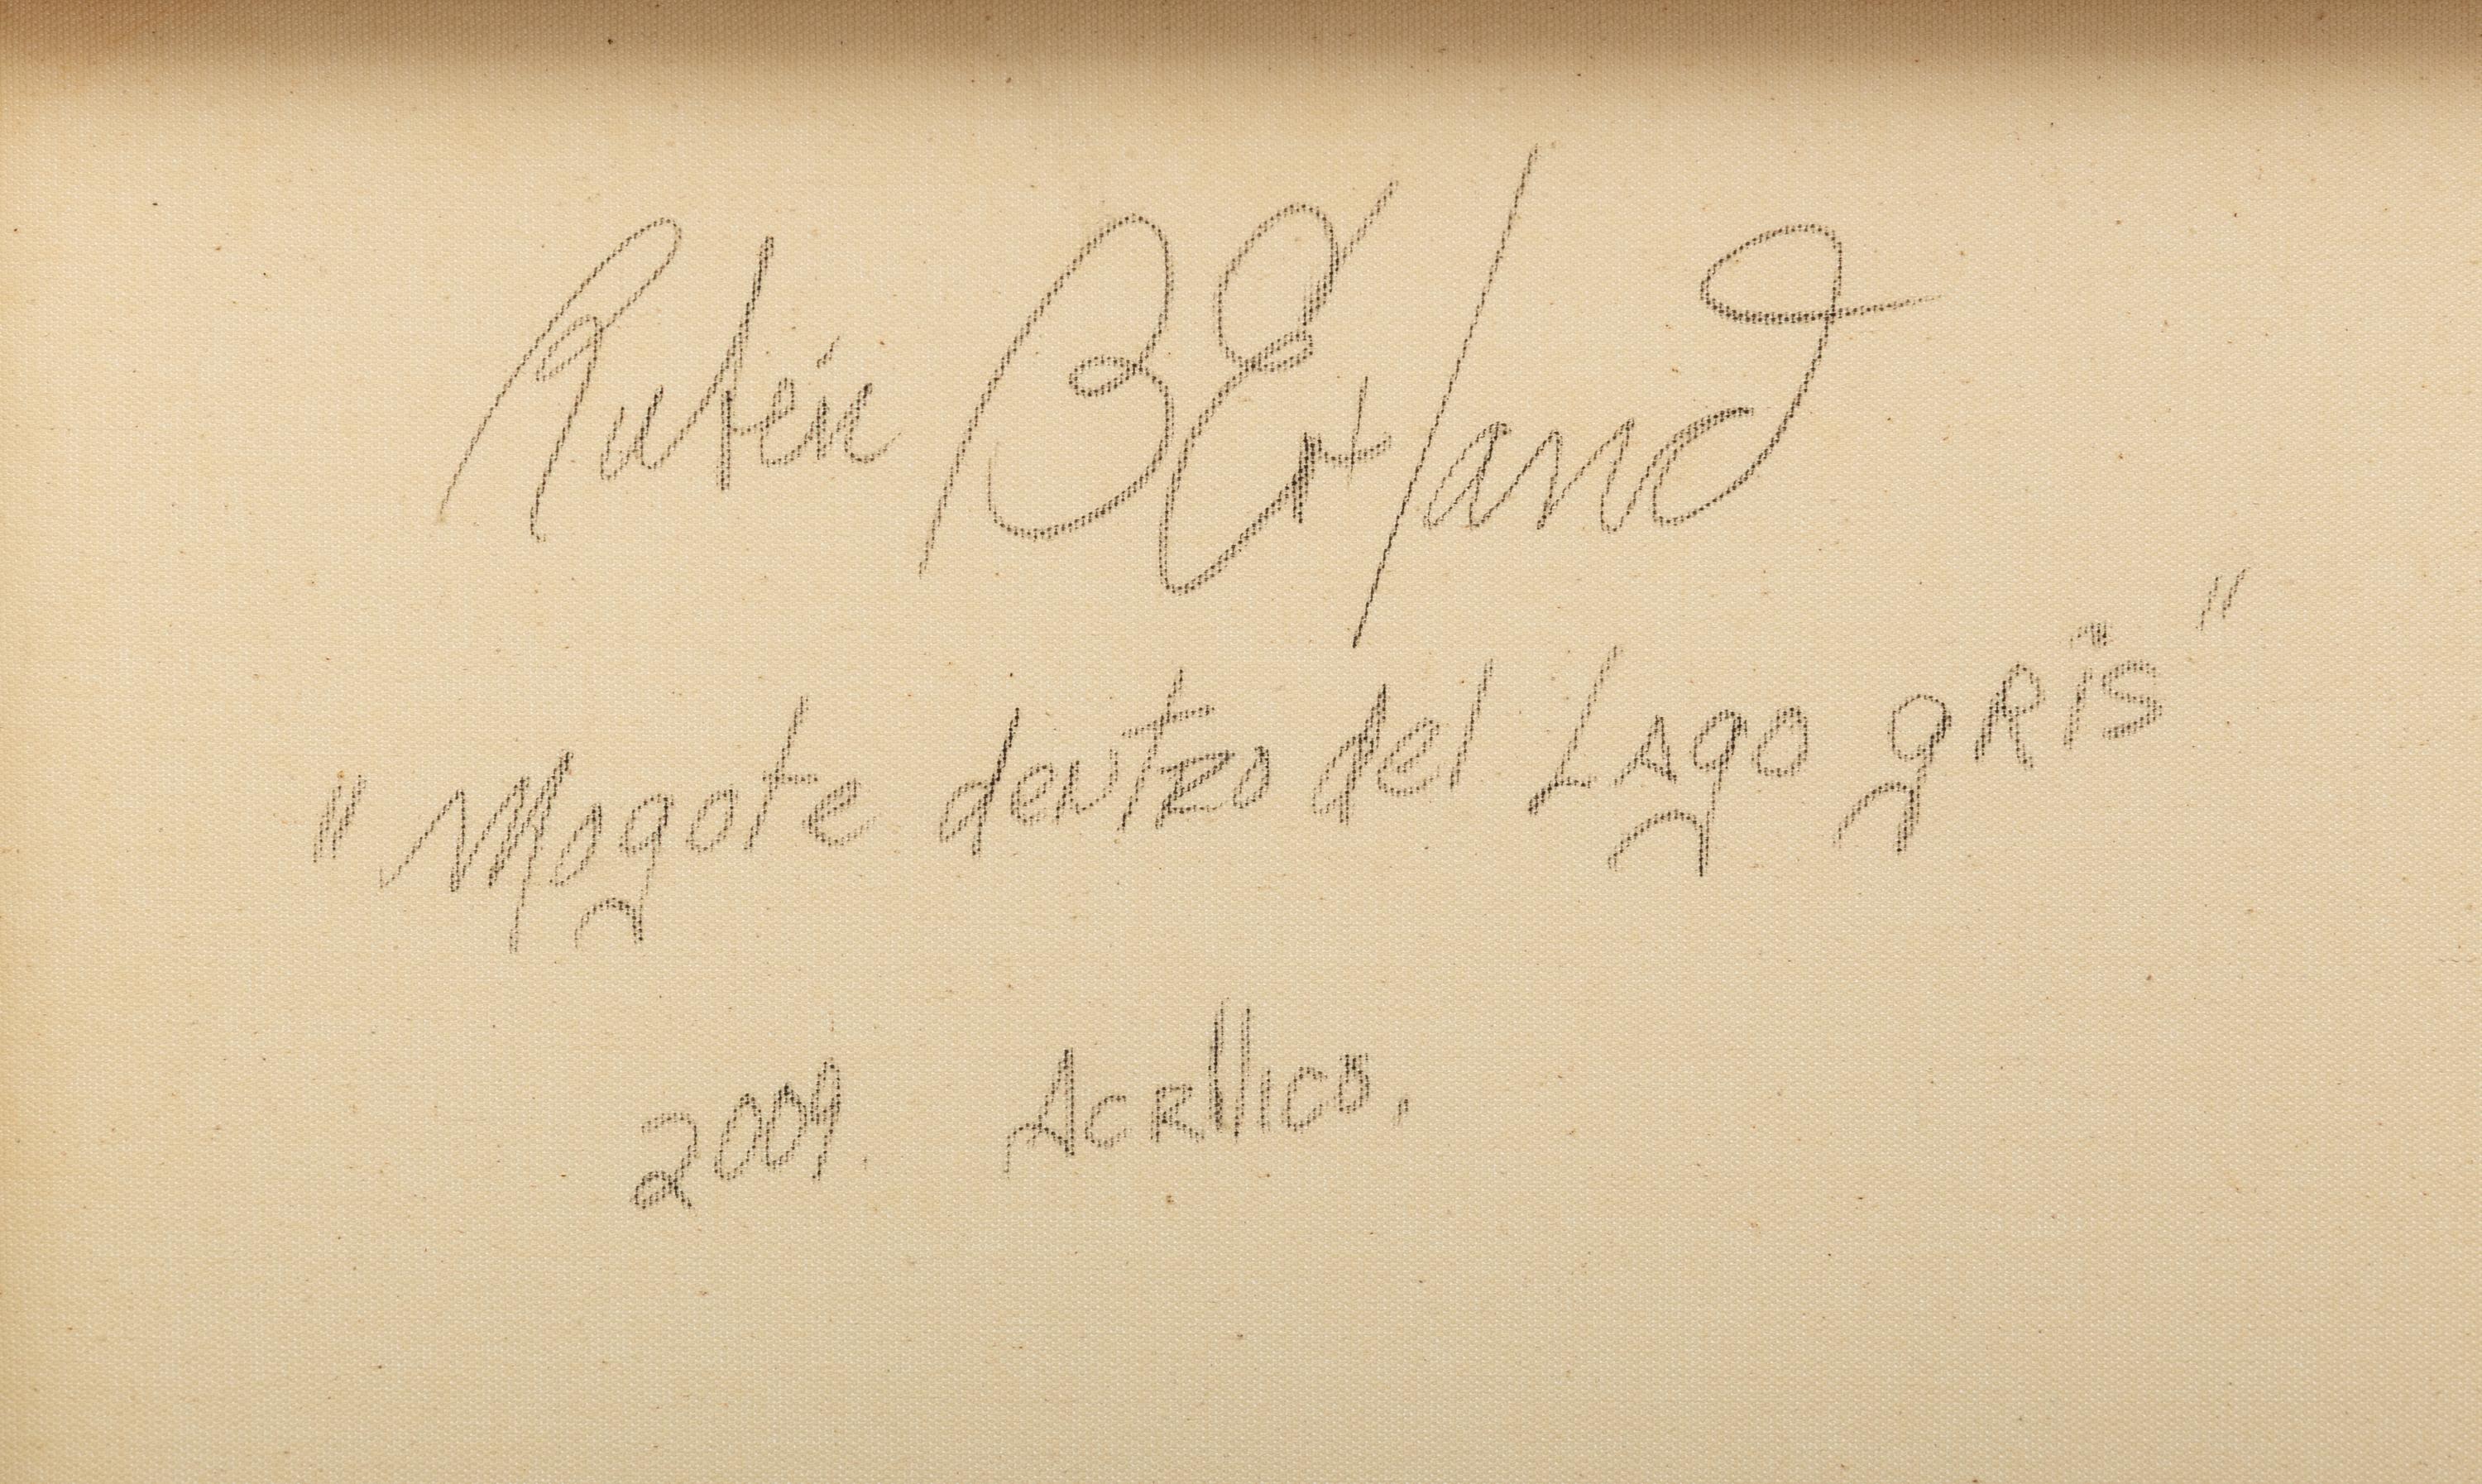 Rubén BErland
"Mogote dentro del Lago gris"
2004. Acrllico.